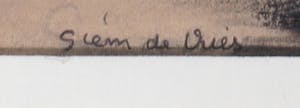 Siem de Vries